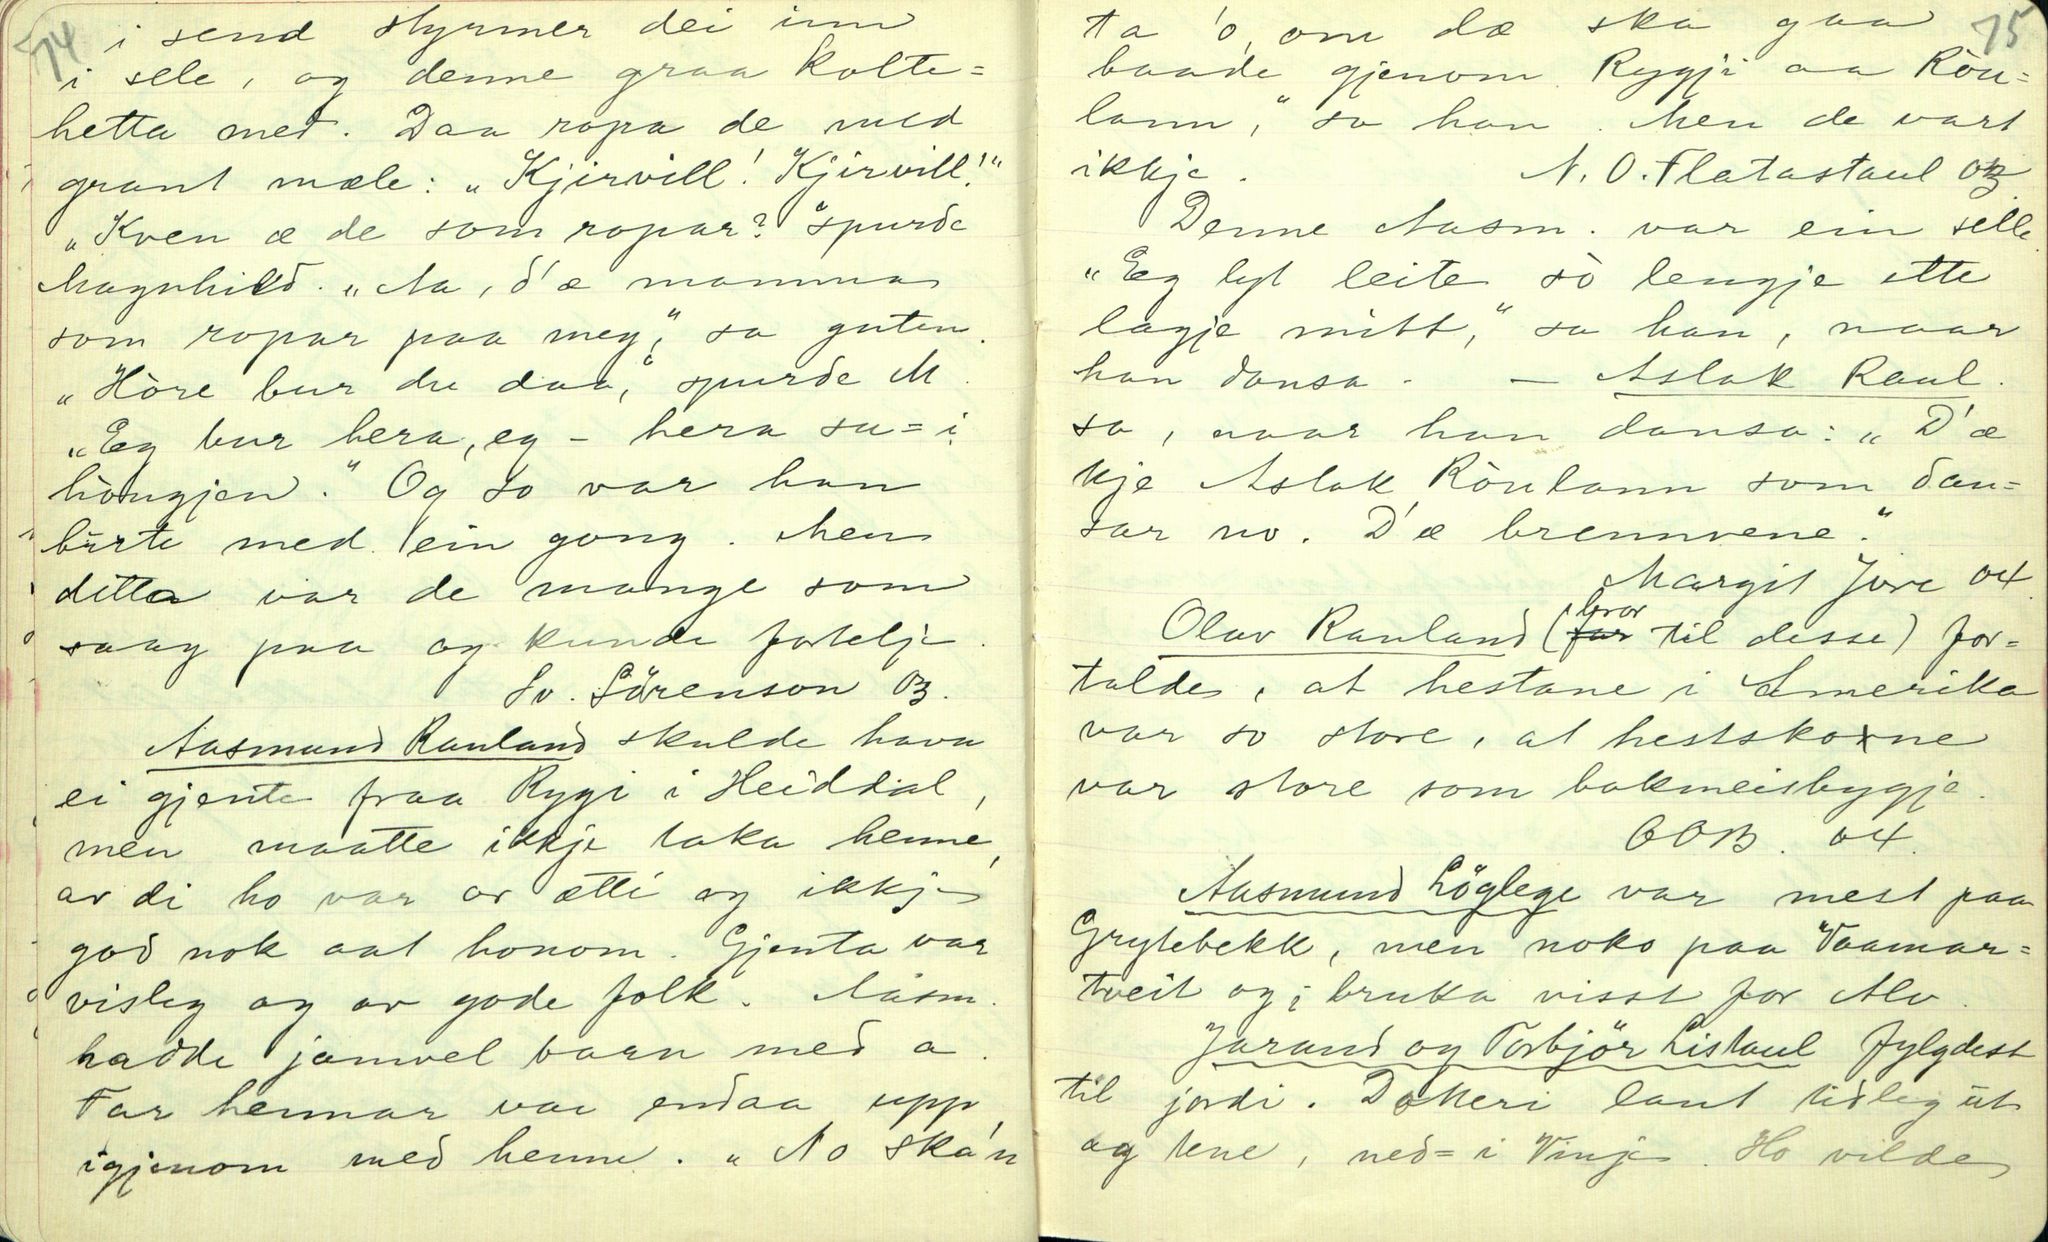 74
i send styrmer dei inn
i sele, og denne graa kolte=
hetta med. Daa ropa de med
grant mæle: „Kjirvill! Kjirvill!“
„Kven æ de som ropar?“ spurde
Magnhild. „Aa, d'æ mamma
som ropar paa meg,“ sa guten.
„Hòre bur du daa,“ spurde M.
„Eg bur hera, eg - hera su=i
hòugjen.“ Og so var han
burte med ein gong. Men
ditta var de mange som
saag paa og kunde fortelje.
Sv. Sörenson 03.
Aasmund Rauland skulde hava
ei gjente fraa Rygi i Heiddal,
men maatte ikkje taka henne,
av di ho var av ætti og ikkje
god nok aat honom. Gjenta var
visleg og av gode folk. Aasm.
hadde jamvel barn med a.
Far hennar var endaa upp
igjenom med henne. „No ska'n
75
ta 'o, om dæ ska gaa
baade gjenom Rygji aa Ròu=
lann,“ sa han. Men de vart
ikkje. N. O. Flatastaul 03
Denne Aasm. var ein selle.
„Eg lyt leite sò lengje ette
lagje mitt,“ sa han, naar
han dansa. — Aslak Raul.
sa, naar han dansa: „D'æ
kje Aslak Ròulann som dan=
sar no. D'æ brennvene.“
Margit Jore 04
Olav Rauland (far bror til desse) for=
talde, at hestane i Amerika
var so store, at hestskorne
var store som bakmeisbygje.
OOB. 04.
Aasmund Löglege var mest paa
Grytebekk, men noko paa Vaamar=
tveit og; bruka visst for Alv.
Jarand og Torbjör Listaul fylgdest
til jordi. Dotteri laut tidleg ut
og tene, ned=i Vinje. Ho vilde